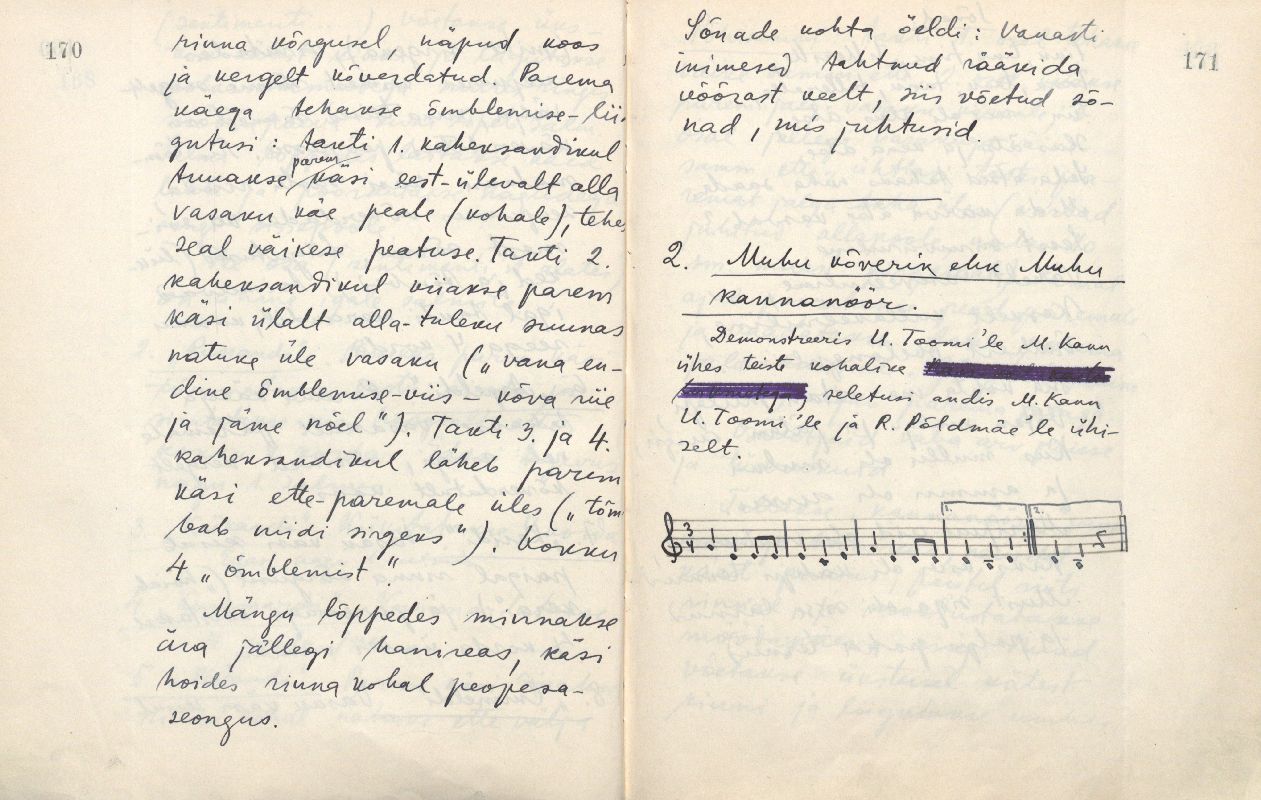 170
rinna kõrgusel, näpud koos
ja kergelt kõverdatud. Parema
käega tehakse õmblemise-lii-
gutusi: takti 1. kaheksandikul
tuuakse parem käsi eest-ülevalt alla
vasaku käe peale (kohale), tehes
seal väikese peatuse. Takti 2.
kaheksandikul viiakse parem
käsi ülalt alla-tuleku suunas
natuke üle vasaku („vana en-
dine õmblemise-viis – kõva riie
ja jäme nõel“). Takti 3. ja 4.
kaheksandikul läheb parem
käsi ette-paremale üles („tõm
bab niidi sirgeks“). Kokku
4 „õmblemist“.
Mängu lõppedes minnakse
ära jällegi hanireas, käsi
hoides rinna kohal peopesa-
seongus.
171
Sõnade kohta öeldi: vanasti
inimesed tahtnud rääkida
võõrast keelt, siis võetud sõ-
nad, mis juhtusid.
2. Muhu kõverik ehk Muhu
kannanöör.
Demonstreeris U. Toomi'le M. Kann
ühes teiste kohalike
seletusi andis M. Kann
U. Toomi'le ja R. Põldmäe'le ühi-
selt.
1. 2.
3
4